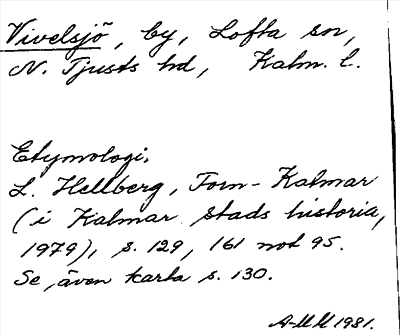 Vivelsjö, by, Lofta sn,
N. Tjusts hd, Kalm. l.
Etymologi.
L. Hellberg, Forn-Kalmar
(i Kalmar stads historia,
1979), s. 129, 161 not 95.
Se även karta s. 130.
A-MM 1981.